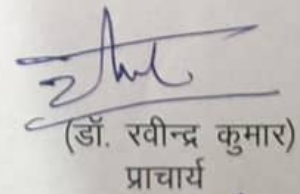 (डॉ. रवीन्द्र कुमार)
प्राचार्य